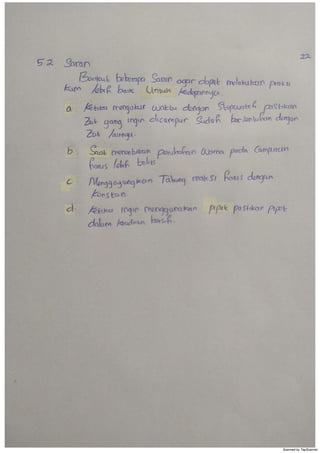 22
5.2 Saran
Berikut beberapa Saran agar dapat melakukan prakti
kum lebih baik Untuk kedepannya.
a. Ketika mengukur waktu dengan Stopwatch pastikan
Zat yang ingin dicampur Sudah bersentuhan dengan
Zat lainnya.
b. Saat menentukan perubahan Warna pada Campuran
harus lebih teliti
c. Menggoyangkan Tabung reaksi harus dengan
Konstan
d. Ketika ingin menggunakan pipet pastikan pipet
dalam keadaan bersih.
Scanned by TapScanner